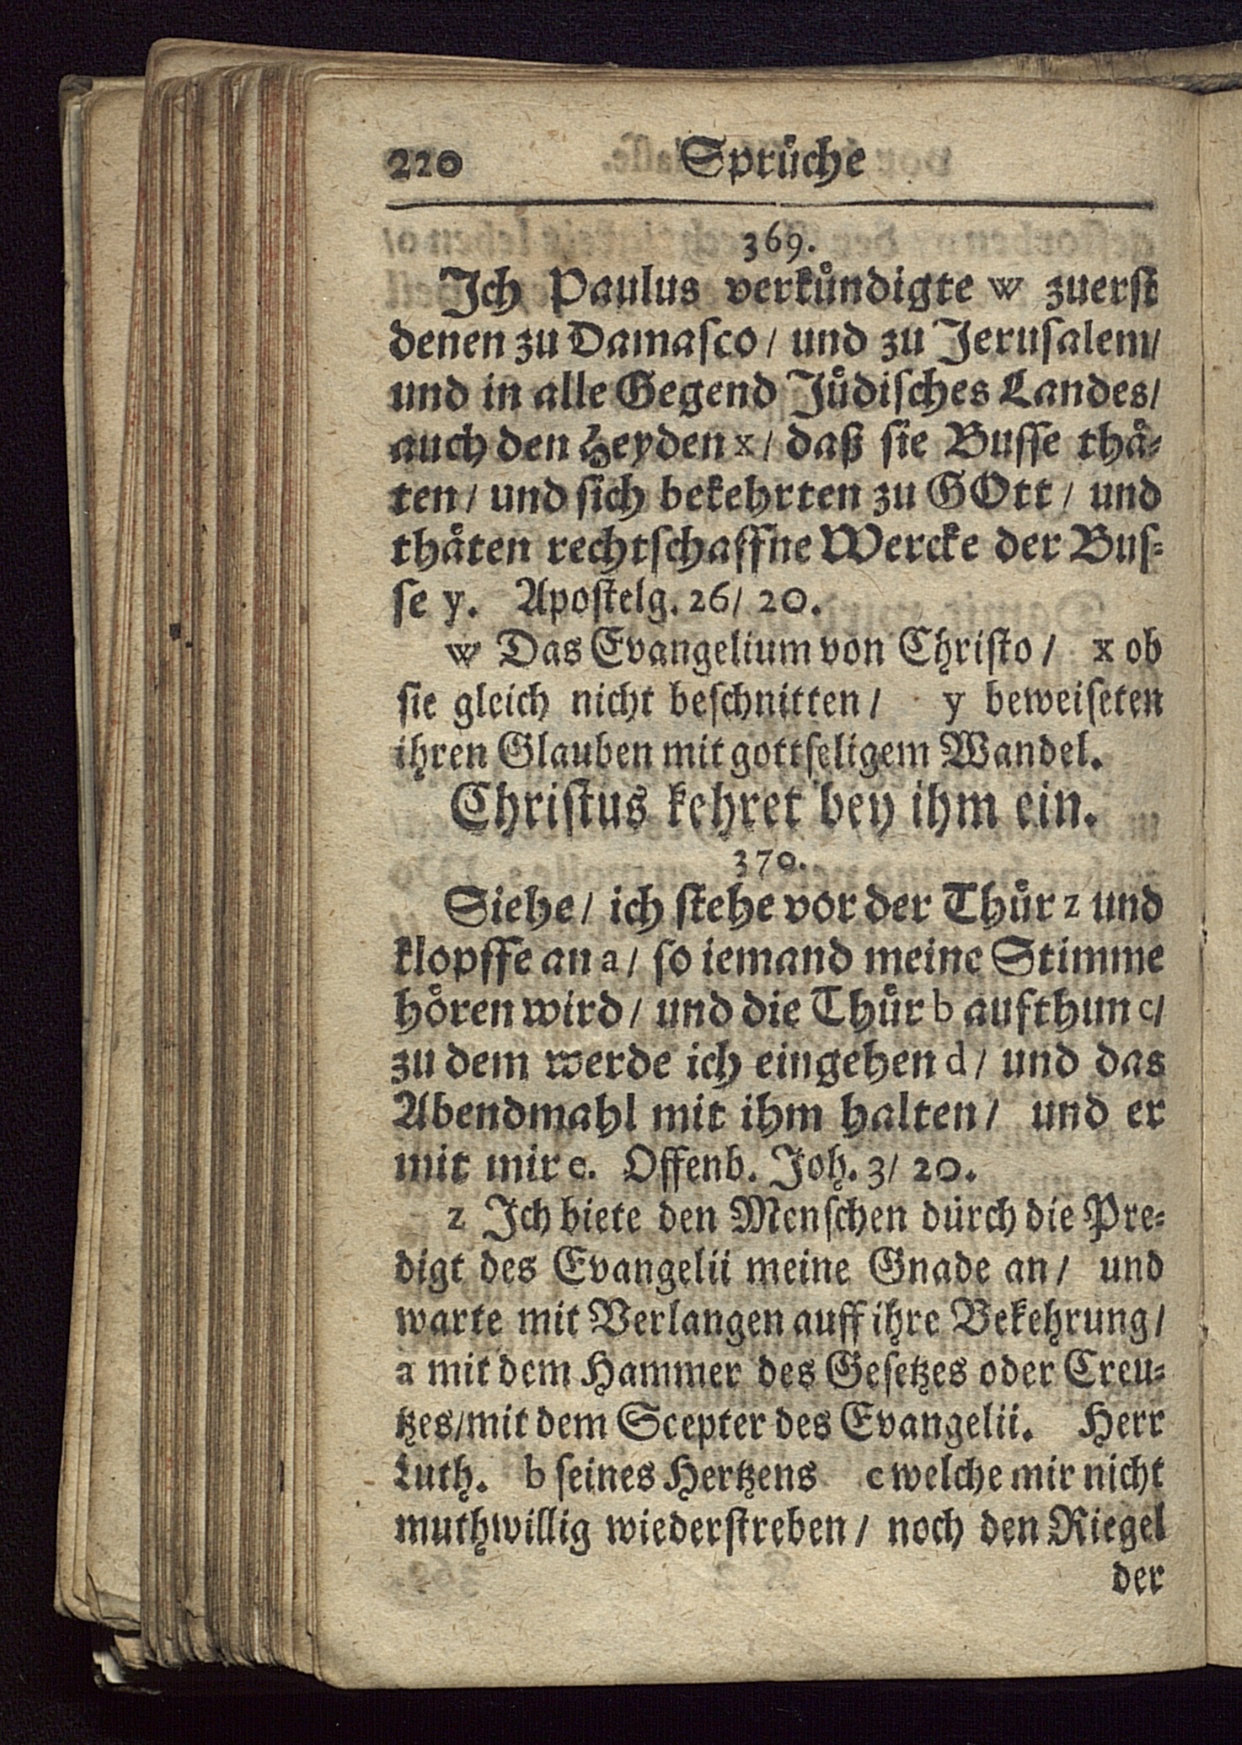 220 Sprüche
369.
Ich Paulus verkündigte w zuerst
denen zu Damasco / und zu Jerusalem/
und in alle Gegend Jüdisches Landes/
auch den Heyden x / daß sie Busse thä-
ten / und sich bekehrten zu GOtt / und
thäten rechtschaffne Wercke der Bus-
se y. Apostelg. 26/ 20.
w Das Evangelium von Christo / x ob
sie gleich nicht beschnitten / y beweiseten
ihren Glauben mit gottseligem Wandel.
Christus kehret bey ihm ein.
370.
Siehe / ich stehe vor der Thür z und
klopffe an a / so iemand meine Stimme
hören wird / und die Thür b aufthun c/
zu dem werde ich eingehen d / und das
Abendmahl mit ihm halten / und er
mit mir e. Offenb. Joh. 3/ 20.
z Ich biete den Menschen durch die Pre-
digt des Evangelii meine Gnade an / und
warte mit Verlangen auff ihre Bekehrung /
a mit dem Hammer des Gesetzes oder Creu-
tzes/mit dem Scepter des Evangelii. Herr
Luth. b seines Hertzens c welche mir nicht
muthwillig wiederstreben / noch den Riegel
der